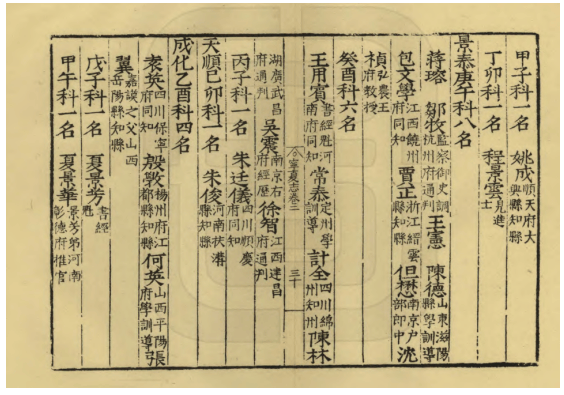 甲子科一名 姚成 順天府大興縣知縣
丁卯科一名 程景雲 見進士
景泰庚午科八名
蔣瑢 鄒牧 監察御史調杭州府通判 王憲 陳德 山東滋陽縣學訓導
包文學 江西饒州府同知 賈正 浙江縉雲縣知縣 但懋 南京戶部郎中 沈
楨 弘農王府教授
癸酉科六名
王用賓 書經魁河南府同知 常泰 定州學訓導 計全 四川綿州知州 陳林
寧夏志卷二 三十
湖廣武昌府通判 吳震 南京右府經歷 徐智 江西建昌府通判
丙子科一名 朱廷儀 四川順慶府同知
天順己卯科一名 朱俊 河南扶溝縣知縣
成化乙酉科四名
袁英 四川保寧府同知 殷斆 揚州府江都縣知縣 何英 山西平陽府學訓導 張
翼 嘉謨之父山西岳陽縣知縣
戊子科一名 夏景芳 書經魁
甲午科一名 夏景華 景芳弟河南彰德府推官